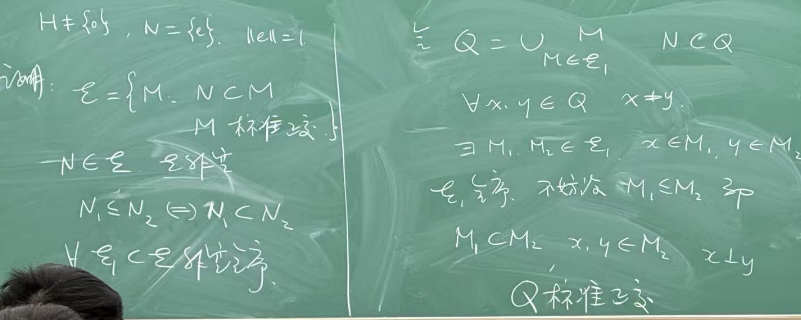 H≠{0}, N={e}, ||e||=1
证明: ℰ={M: N⊂M
M 标准正交}
N∈ℰ, ℰ非空
N₁≤N₂ ⟺ N₁⊂N₂
∀ ℰ₁⊂ℰ 非空全序.
令 Q = ∪ M N⊂Q
M∈ℰ₁
∀x, y∈Q x≠y.
∃ M₁, M₂∈ℰ₁, x∈M₁, y∈M₂
ℰ₁全序. 不妨设 M₁≤M₂. 即
M₁⊂M₂ x, y∈M₂ x⊥y
Q标准正交